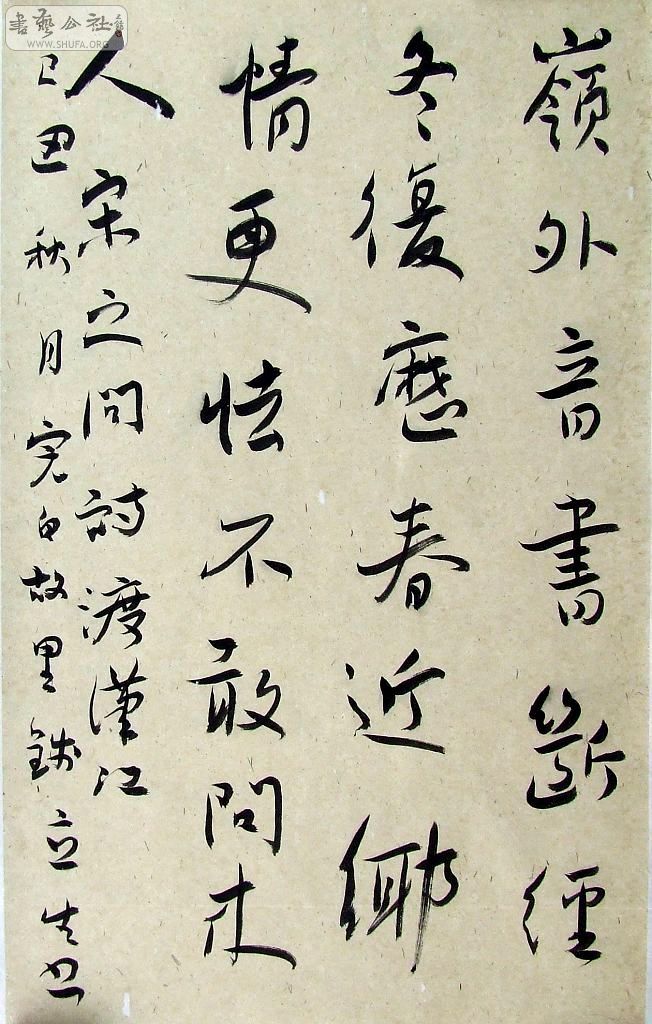 書藝公社
WWW.SHUFA.ORG
嶺外音書斷經
冬復歷春近鄉
情更怯不敢問来
人宋之問詩渡漢江
己丑秋月完白故里錢立生书